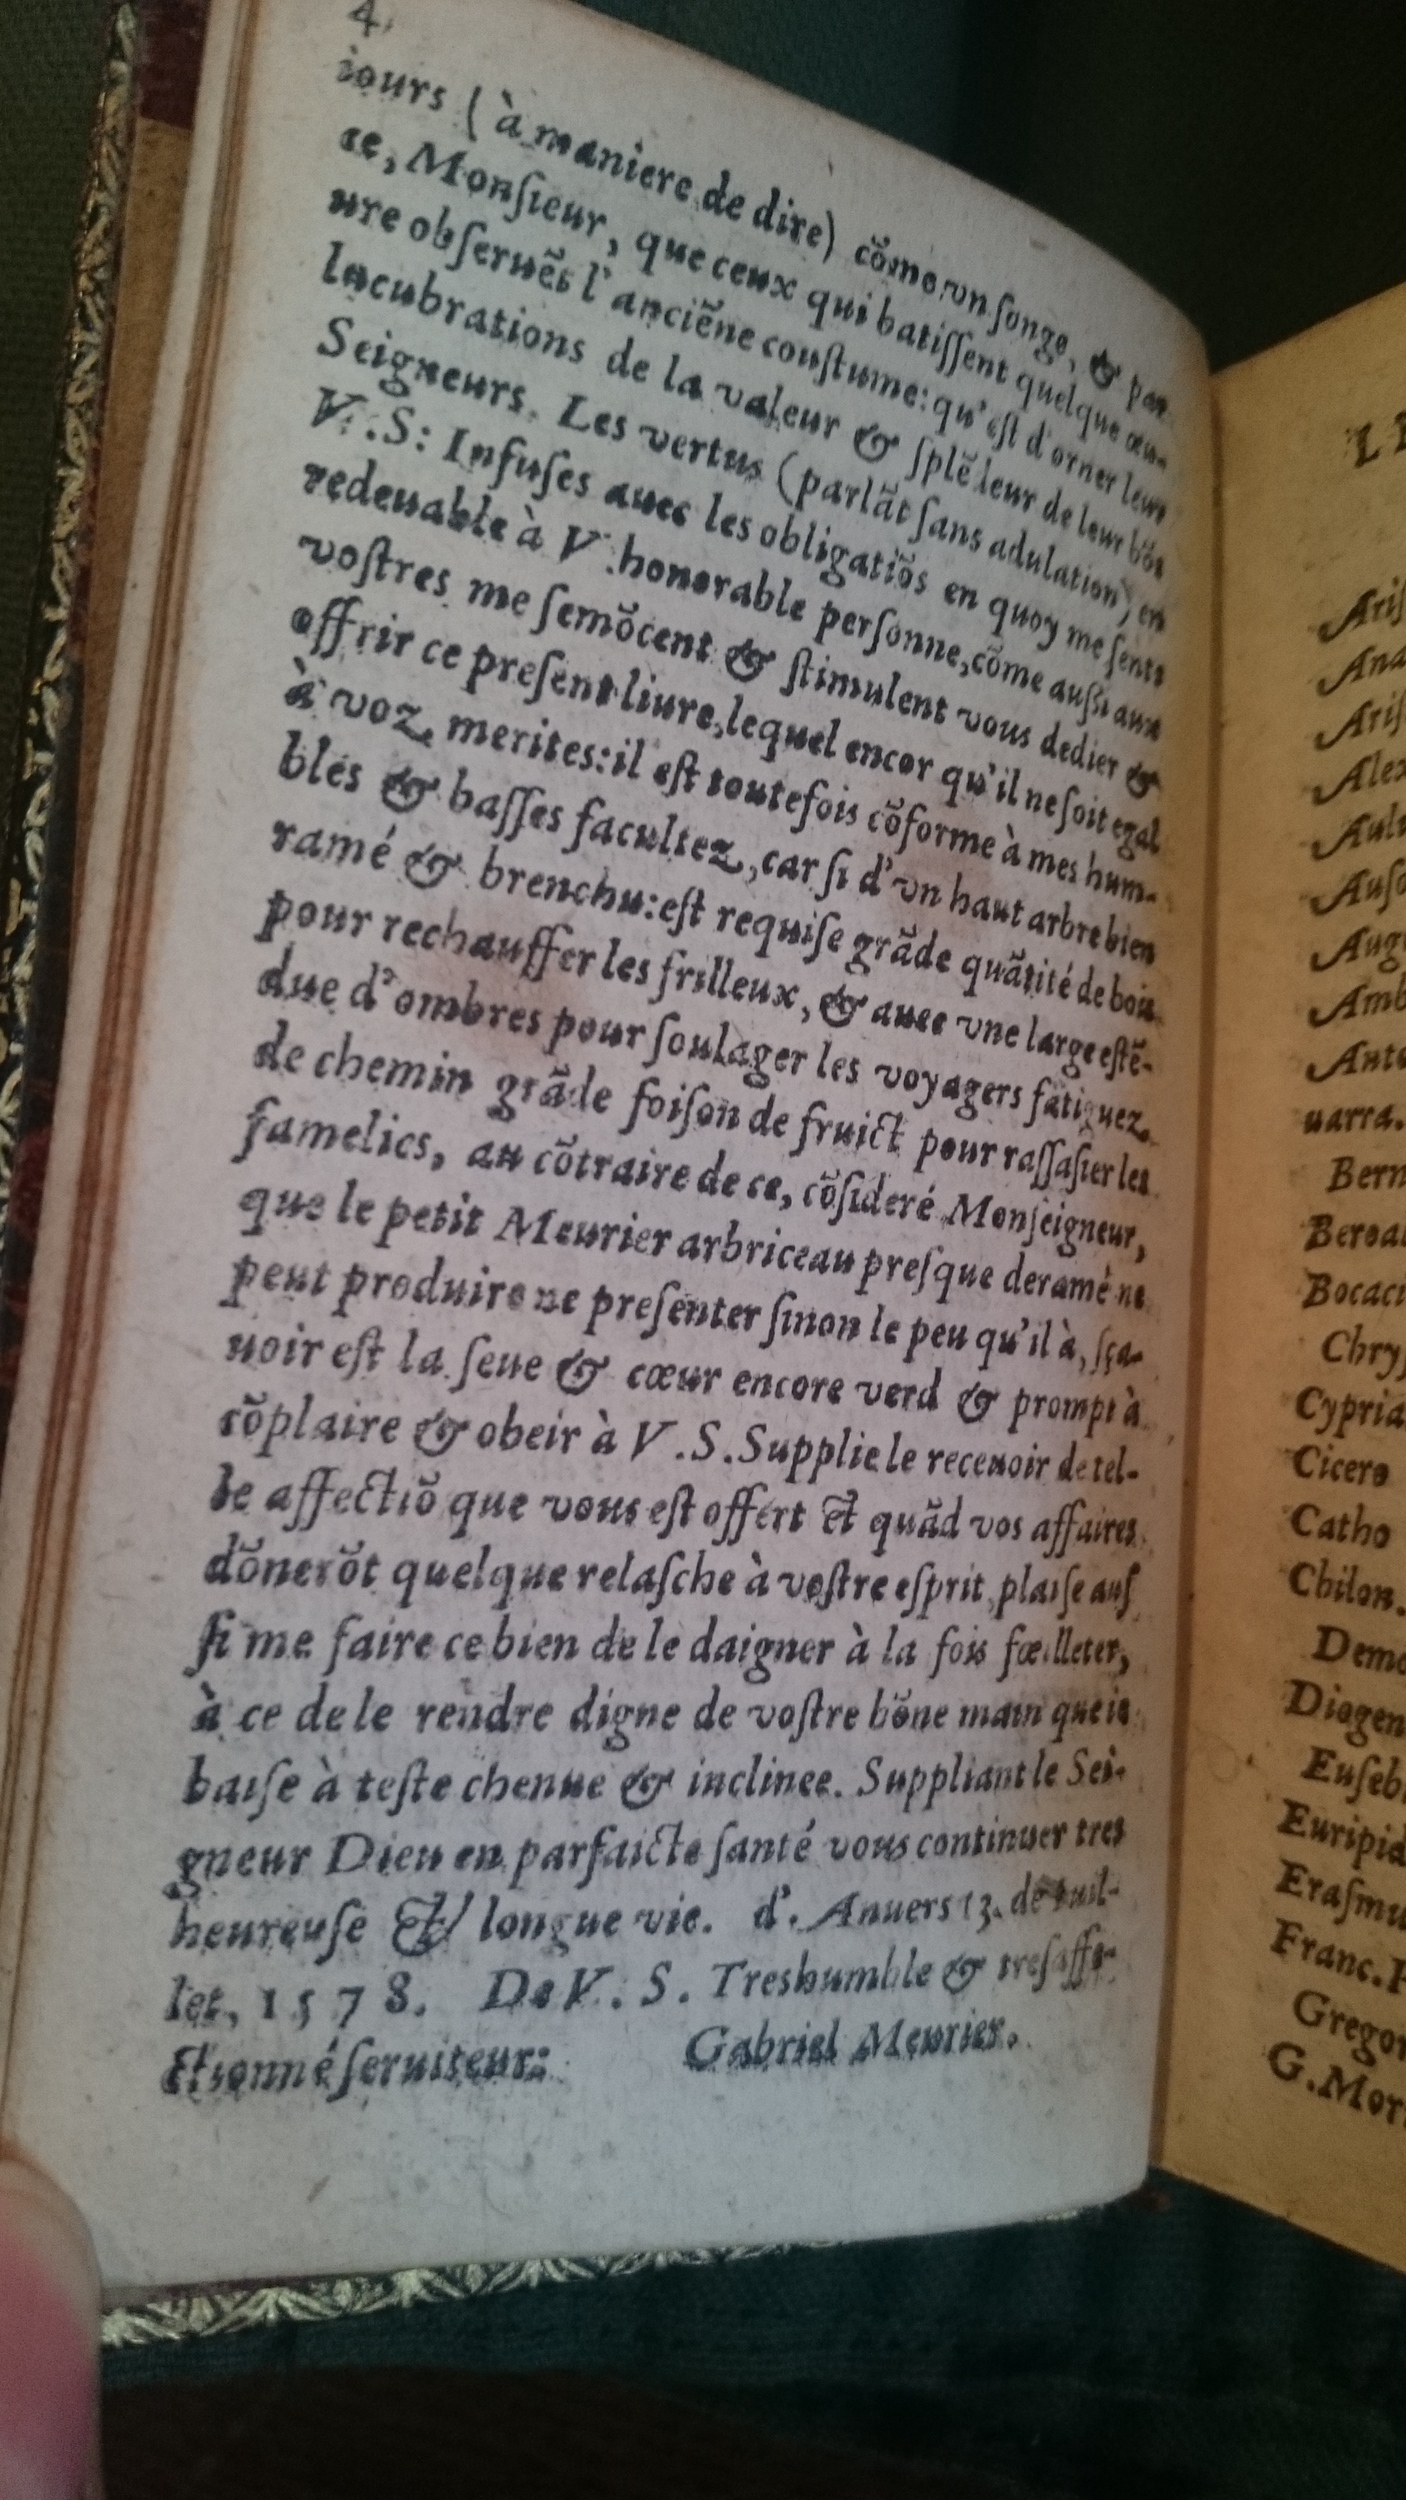 4.
iours ( à maniere de dire) cõme vn songe, & par
ce, Monſieur, que ceux qui batiſſent quelque œu-
ure obſeruẽt l'anciẽne couſtume: qu'eſt d'orner leurs
lucubrations de la valeur & ſplẽdeur de leur bõs
Seigneurs. Les vertus (parlãt ſans adulation) en
V.S: Infuſes auec les obligatiõs en quoy me ſents
redeuable à V. honorable perſonne, cõme auſſi aux
voſtres me ſemõcent & ſtimulent vous dedier &
offrir ce preſent liure, lequel encor qu'il ne ſoit egal
à voz merites: il eſt toutefois cõforme à mes hum-
bles & baſſes facultez, car ſi d'vn haut arbre bien
ramé & brenchu: eſt requiſe grãde quãtité de bois
pour rechauffer les frilleux, & auec vne large eſtẽ-
due d'ombres pour ſoulager les voyagers fatiguez
de chemin grãde foiſon de fruict pour raſſaſier les
famelics, au cõtraire de ce, cõſideré Monſeigneur,
que le petit Meurier arbriceau preſque deramé ne
peut produire ne preſenter ſinon le peu qu'il à, ſça-
uoir eſt la ſeue & cœur encore verd & prompt à
cõplaire & obeir à V.S. Supplie le receuoir de tel-
le affectiõ que vous eſt offert et quãd vos affaires
dõnerõt quelque relaſche à voſtre eſprit, plaiſe auſ
ſi me faire ce bien de le daigner à la fois fœilleter,
à ce de le rendre digne de voſtre bõne main que ie
baiſe à teſte chenue & inclinee. Suppliant le Sei-
gneur Dieu en parfaicte ſanté vous continuer tres
heureuſe & longue vie. d'. Anuers 13. de Iuil-
let, 1578. De V. S. Treshumble & treſaffe-
ctionné ſeruiteur: Gabriel Meurier.
Bern
Cicero
Catho
Chilon.
Demo
Diogen
Euſeb
Euripid
Eraſmu
Franc.
Gregor
G.Mor